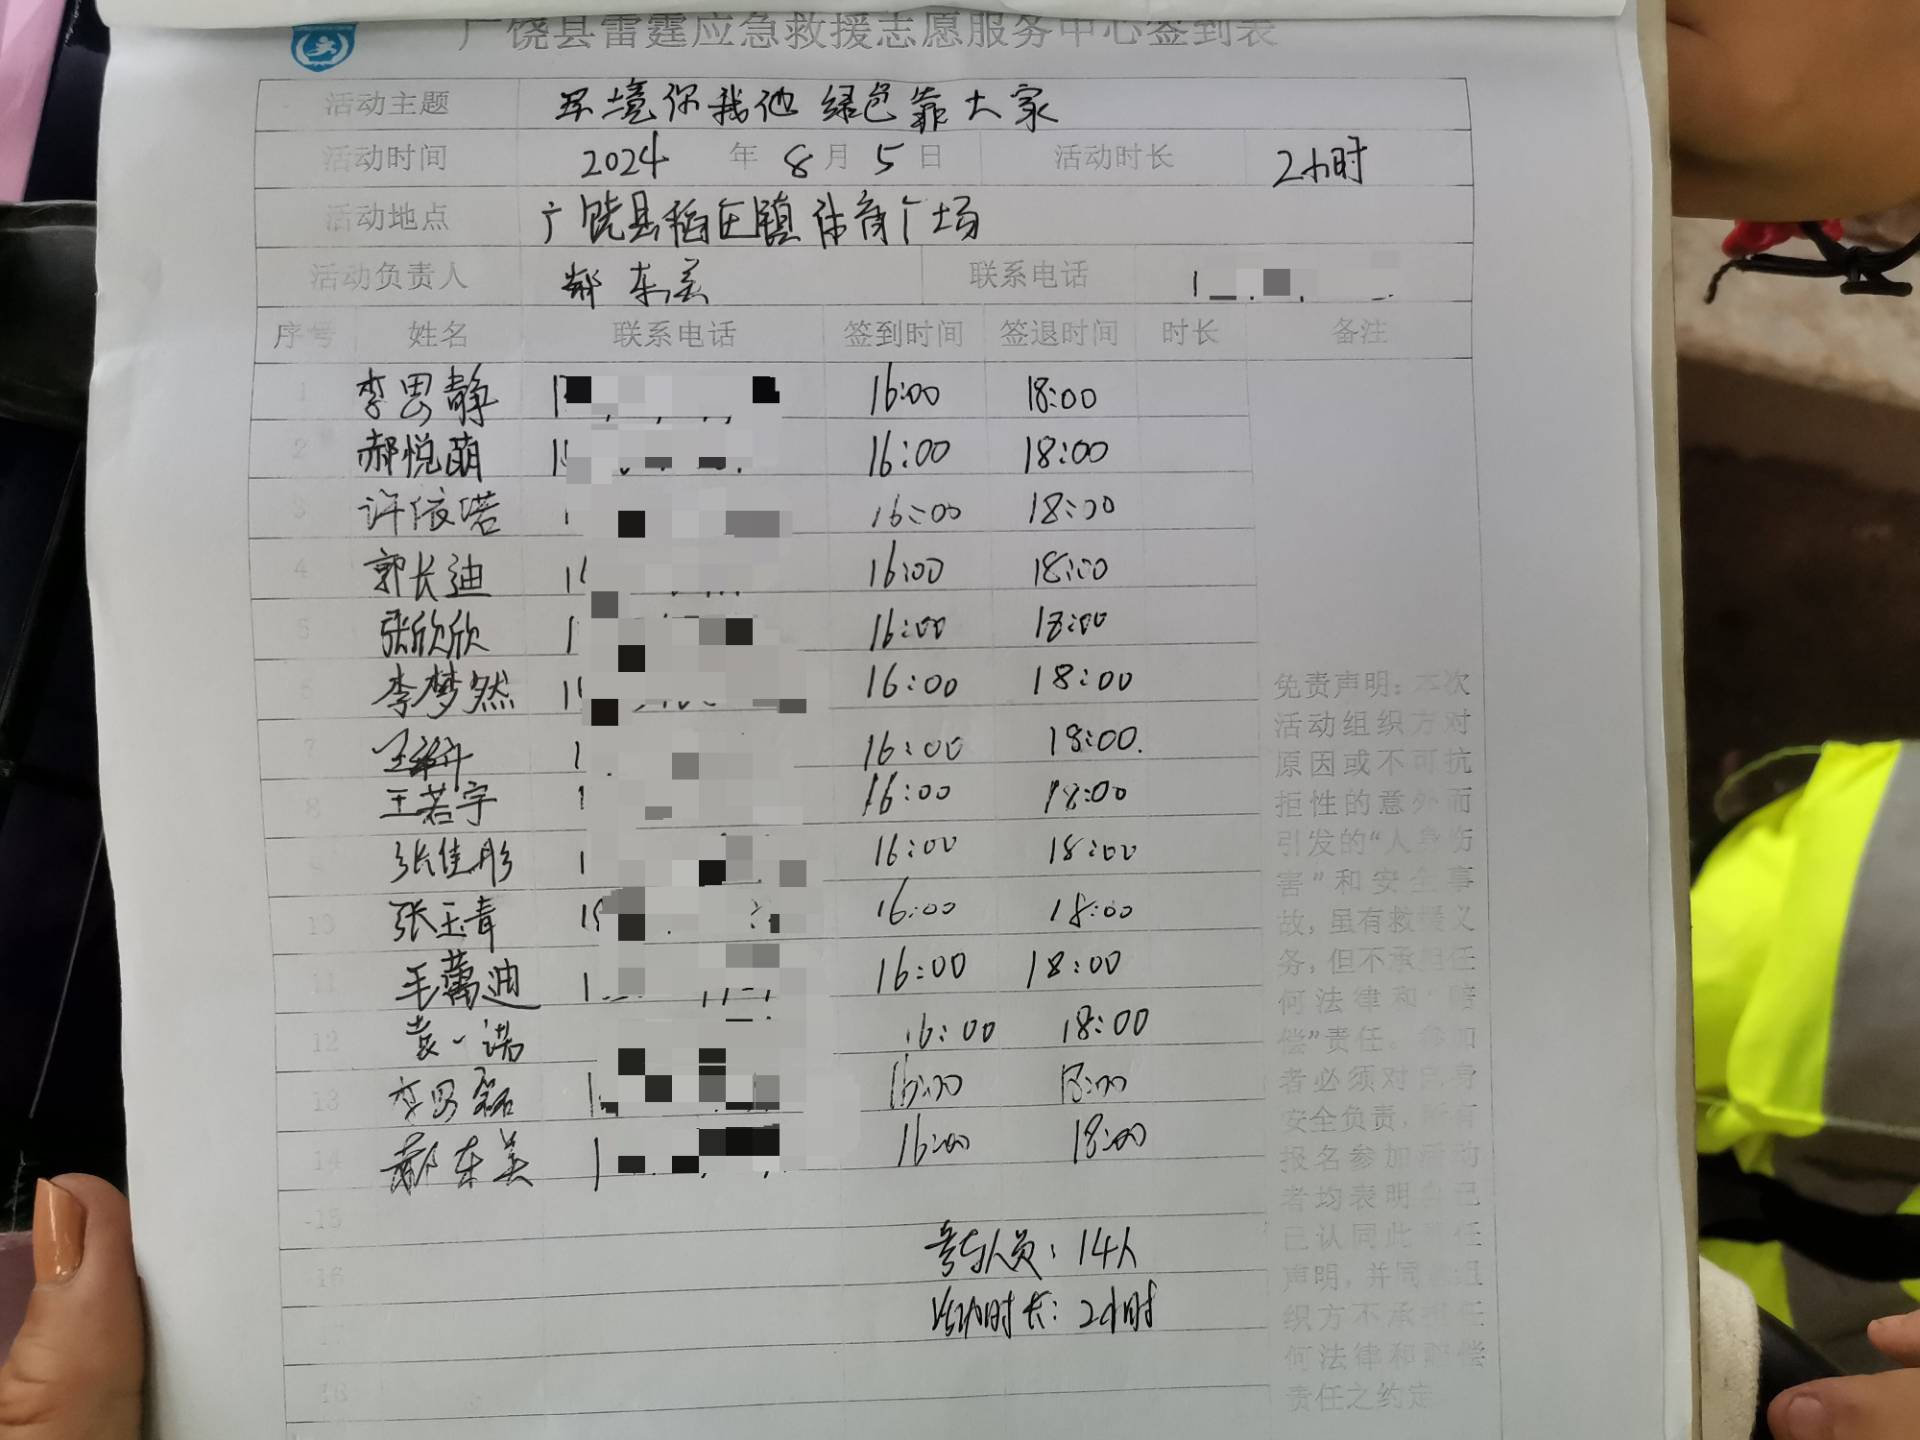 广饶县雷霆应急救援志愿服务中心签到表
活动主题 环境你我他 绿色靠大家
活动时间 2024 年 8 月 5 日 活动时长 2小时
活动地点 广饶县稻庄镇体育广场
活动负责人 郝东美 联系电话
序号 姓名 联系电话 签到时间 签退时间 时长 备注
1 李思静 16:00 18:00
2 郝悦萌 16:00 18:00
3 许依诺 16:00 18:00
4 郭长迪 16:00 18:00
5 张欣欣 16:00 18:00
6 李梦然 16:00 18:00
7 16:00 18:00.
8 王若宇 16:00 18:00
9 张佳彤 16:00 18:00
10 张玉青 16:00 18:00
11 毛蕾迪 16:00 18:00
12 袁一诺 16:00 18:00
13 李思 16:00 18:00
14 郝东美 16:00 18:00
15
16
17
18
参与人员：14人
活动时长：2小时
免责声明：本次
活动组织方对
原因或不可抗
拒性的意外而
引发的“人身伤
害”和安全事
故，虽有救援义
务，但不承担任
何法律和“赔
偿”责任。参加
者必须对自身
安全负责，所有
报名参加活动
者均表明自己
已认同此责任
声明，并同意组
织方不承担任
何法律和赔偿
责任之约定